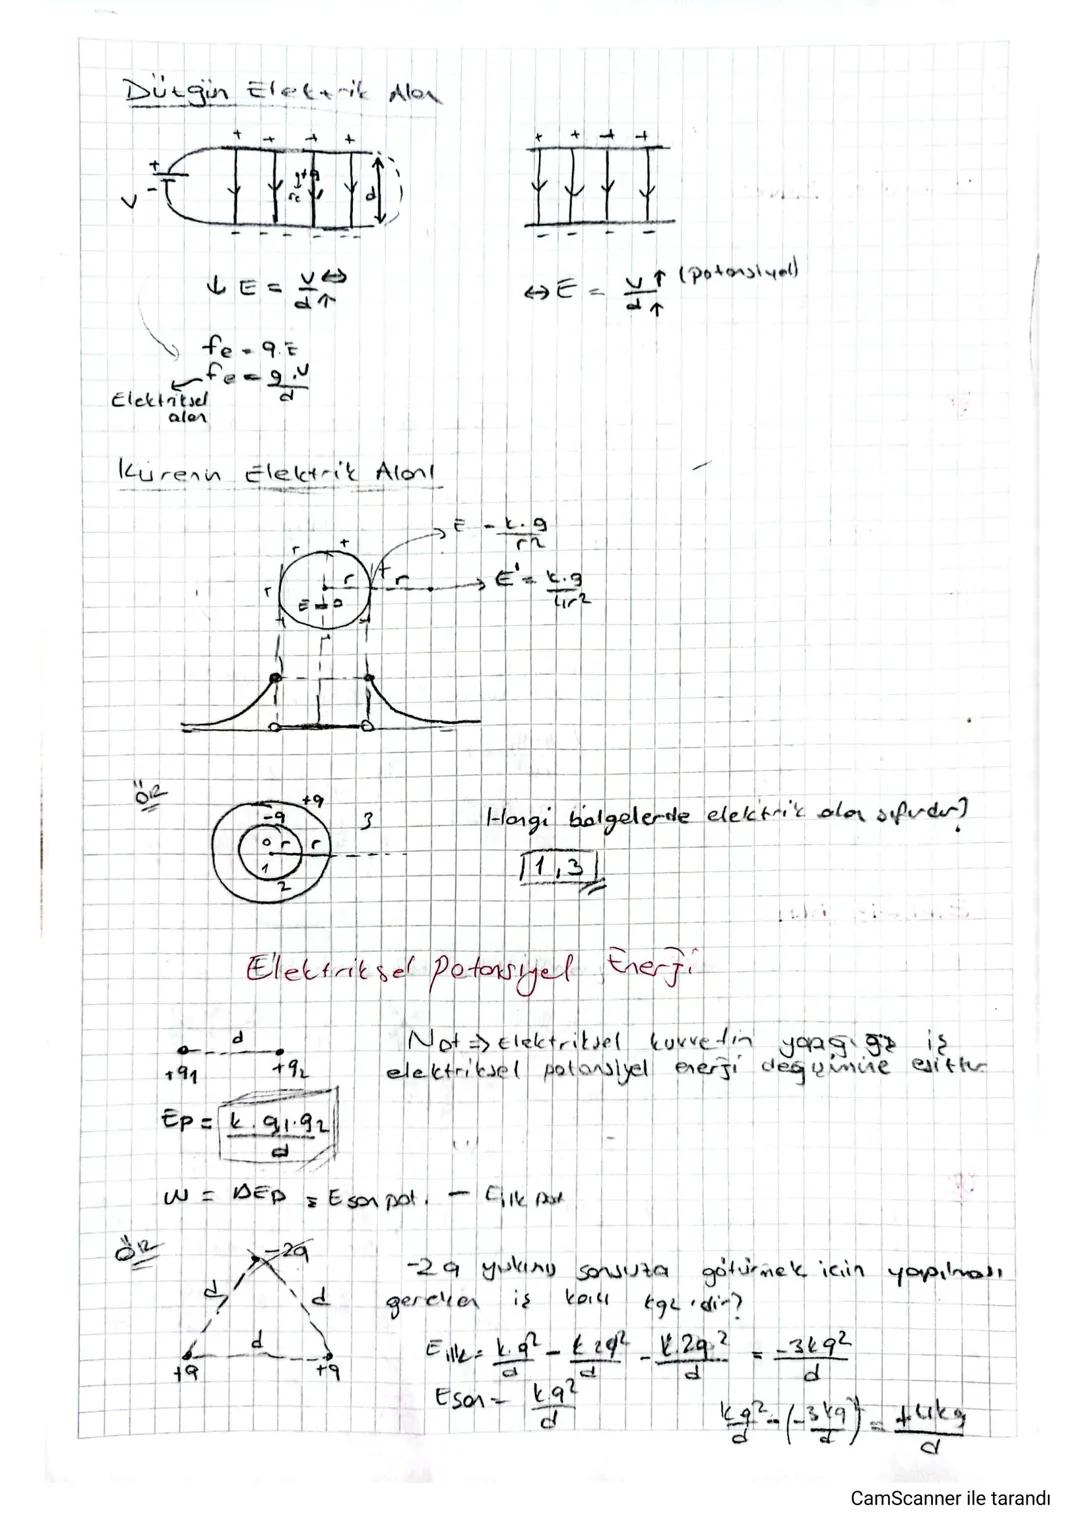 Düzgün Elektrik Alan
+ + + +
+ + + +
+
V
-
+q
fe
d
- - - - - -
- - - -
↓ E = V↔/d↑
↔ E = V↑/d↑ (Potansiyel)
fe = q.E
fe = q.V/d
Elektriksel
alan
Kürenin Elektrik Alanı
E = k.q/r2
E' = k.q/4r2
r + r + r
E=0
ÖR
+q
-q
3
O r r
1
2
Hangi bölgelerde elektrik alan sıfırdır?
1,3
Elektriksel Potansiyel Enerji
d
+q1 +q2
Not ⇒ Elektriksel kuvvetin yaptığı iş
elektriksel potansiyel enerji değişimine eşittir
Ep = k.q1.q2/d
W = ΔEp = Eson pot. - Eilk pot
ÖR
-2q
d d
d
+q +q
-2q yükünü sonsuza götürmek için yapılması
gereken iş kaç kq2 'dir?
Eilk = k.q2/d - k2q2/d - k.2q2/d = -3kq2/d
Eson = k.q2/d
kq2/d - (-3kq/d) = +4kq/d
CamScanner ile tarandı